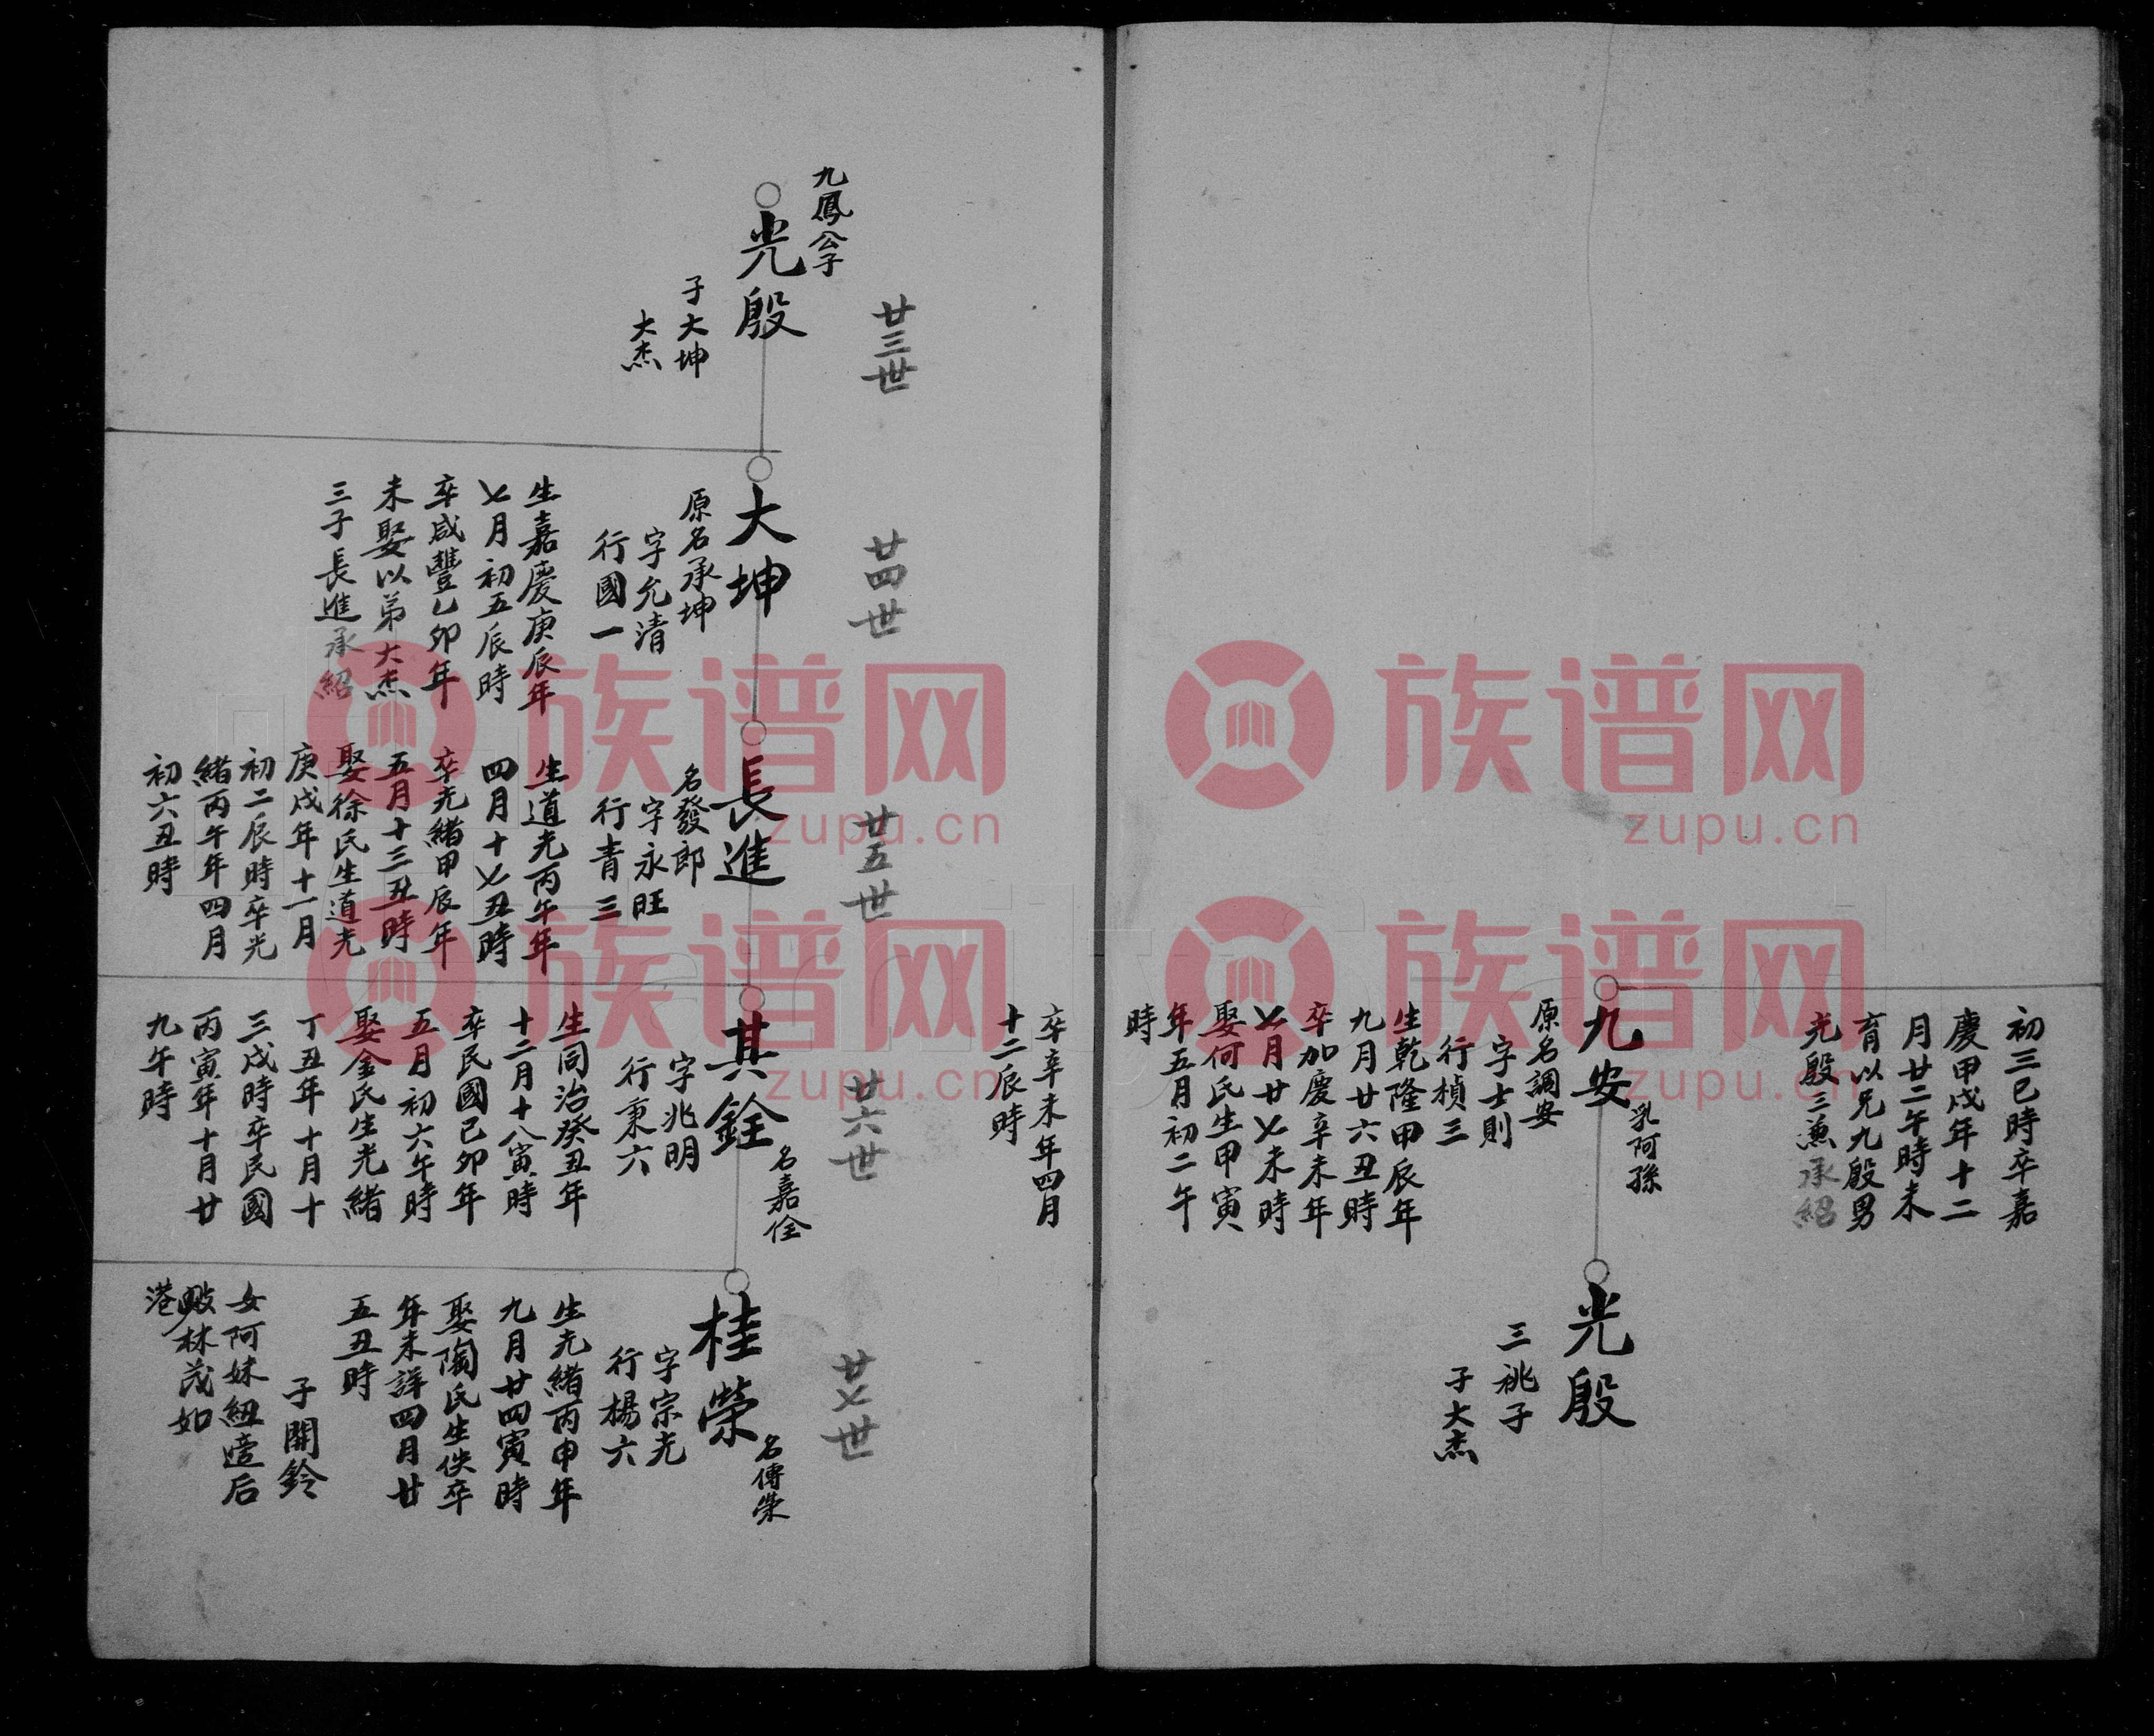 初三巳時卒嘉
慶甲戌年十二
月廿二午時未
育以兄九殷男
光殷三兼承紹
九安
乳阿孫
原名調安
字士則
行楨三
生乾隆甲辰年
九月廿六丑時
卒加慶辛未年
七月廿七未時
娶何氏生甲寅
年五月初二午
時
光殷
三祧子
子大杰
卒辛未年四月
十二辰時
廿三世
九鳳公子
光殷
子大坤
大杰
廿四世
大坤
原名承坤
字允清
行國一
生嘉慶庚辰年
七月初五辰時
卒咸豐乙卯年
未娶以弟大杰
三子長進承紹
廿五世
長進
名發郎
字永旺
行青三
生道光丙午年
四月十七丑時
卒光緒甲辰年
五月十三丑時
娶徐氏生道光
庚戌年十一月
初二辰時卒光
緒丙午年四月
初六丑時
廿六世
其銓
名嘉佺
字兆明
行秉六
生同治癸丑年
十二月十八寅時
卒民國己卯年
五月初六午時
娶金氏生光緒
丁丑年十月十
三戌時卒民國
丙寅年十月廿
九午時
廿七世
桂榮
名傳榮
字宗光
行楊六
生光緒丙申年
九月廿四寅時
娶陶氏生佚卒
年未詳四月廿
五丑時
子開鈴
女阿妹紐適后
畈林茂如
港
族谱网
zupu.cn
族谱网
zupu.cn
族谱网
zupu.cn
族谱网
zupu.cn